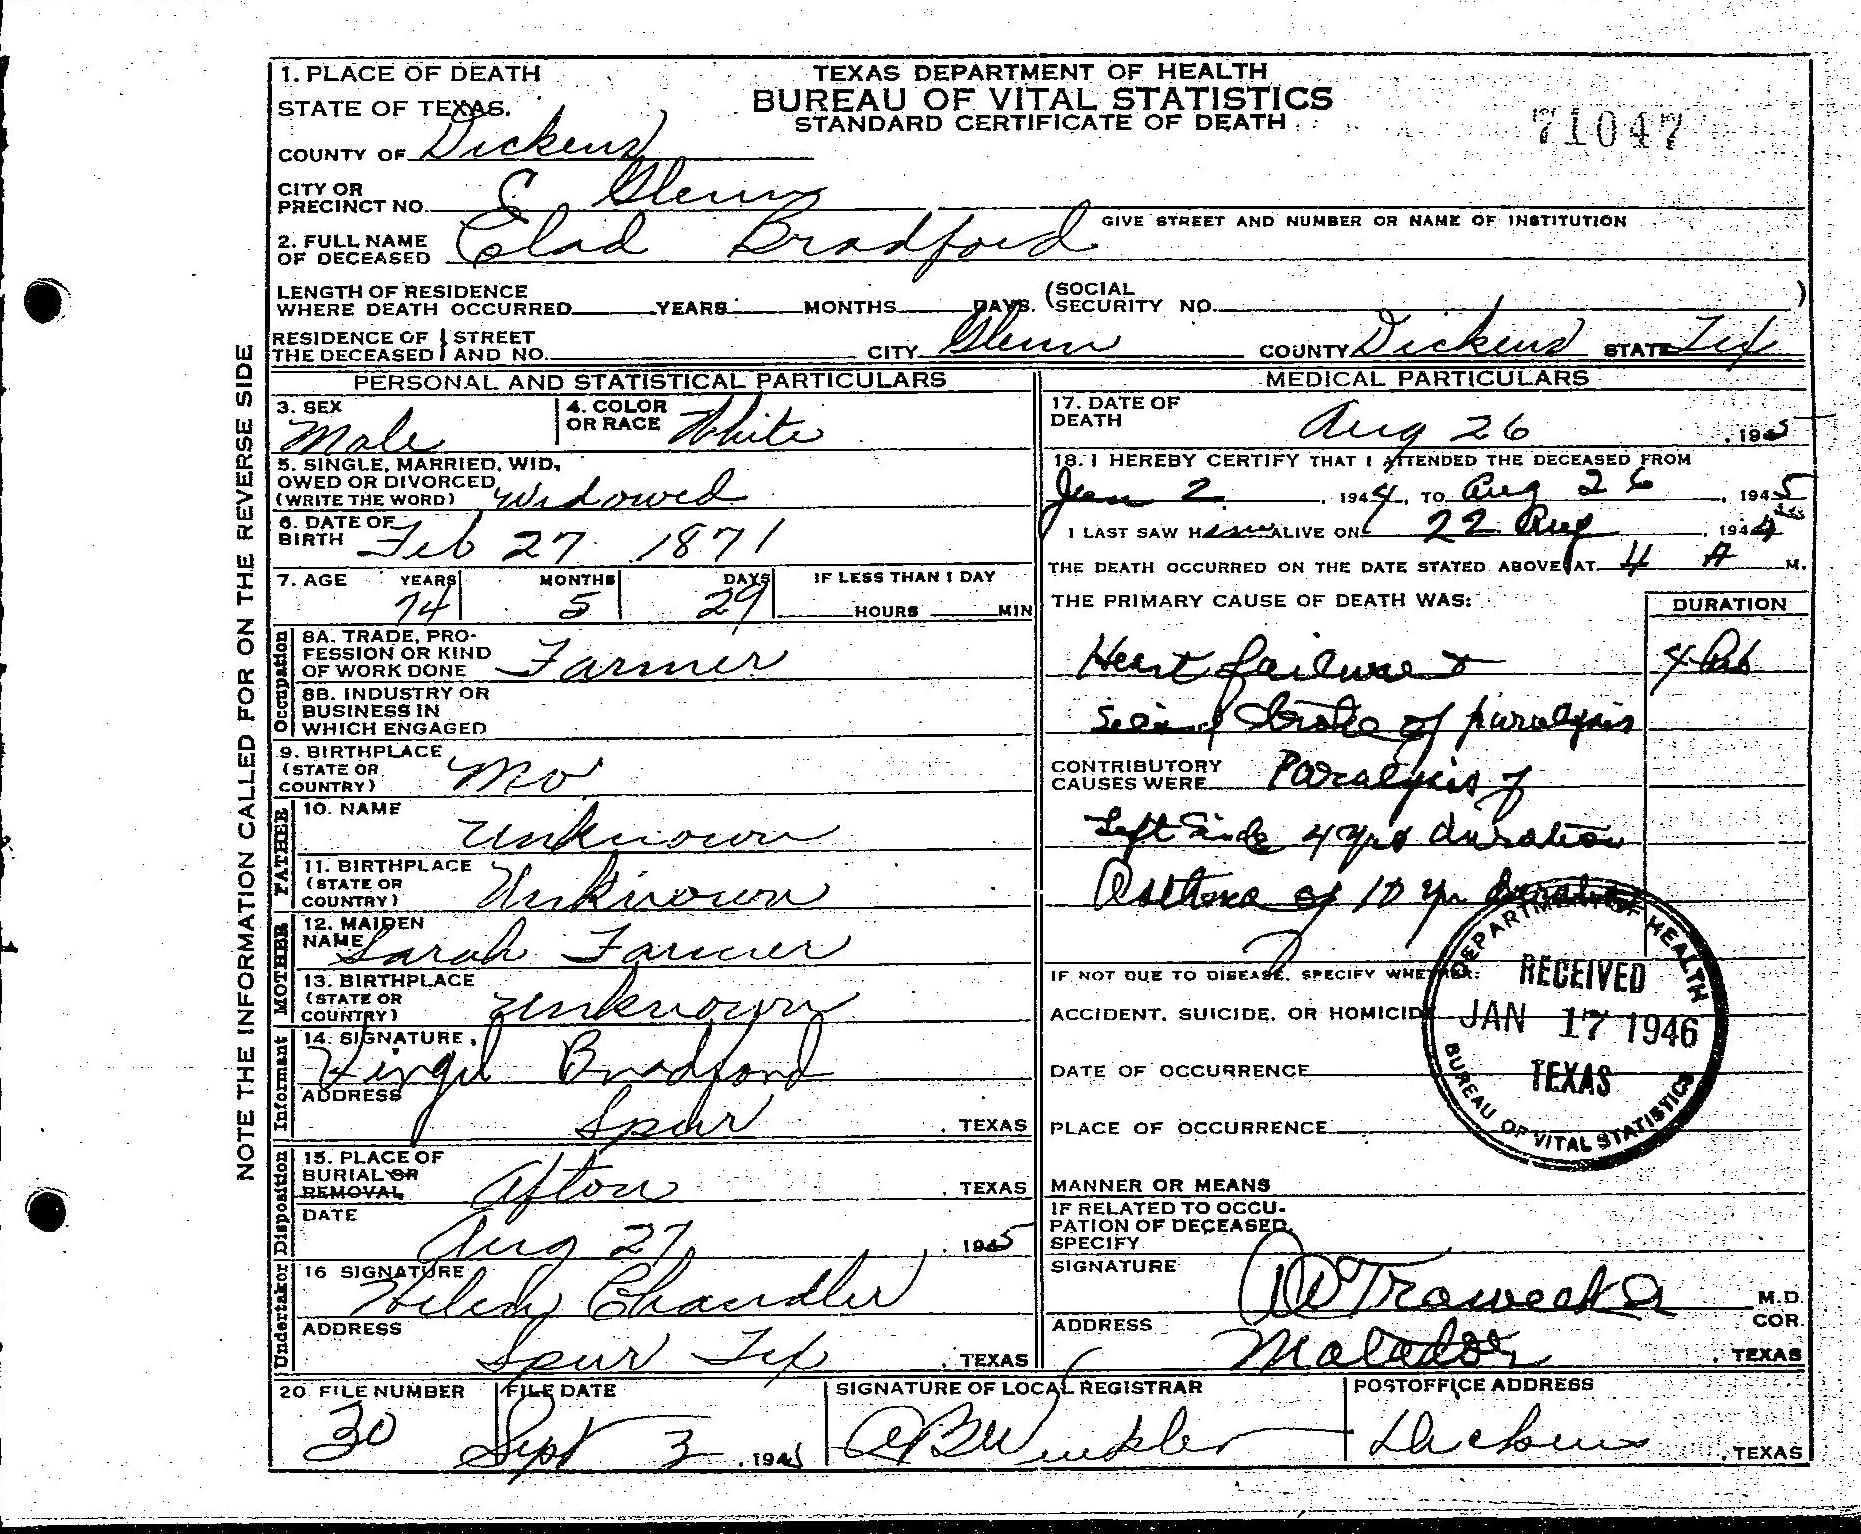 1. PLACE OF DEATH
STATE OF TEXAS.
TEXAS DEPARTMENT OF HEALTH
BUREAU OF VITAL STATISTICS
STANDARD CERTIFICATE OF DEATH
71047
COUNTY OF Dickens
CITY OR PRECINCT NO. Glenn
GIVE STREET AND NUMBER OR NAME OF INSTITUTION
2. FULL NAME OF DECEASED Elad Bradford
LENGTH OF RESIDENCE
WHERE DEATH OCCURRED YEARS MONTHS DAYS. (SOCIAL SECURITY NO. )
RESIDENCE OF THE DECEASED STREET AND NO. CITY Glenn COUNTY Dickens STATE Tex
PERSONAL AND STATISTICAL PARTICULARS
3. SEX Male
4. COLOR OR RACE White
5. SINGLE, MARRIED, WID,
OWED OR DIVORCED
(WRITE THE WORD) Widowed
6. DATE OF BIRTH Feb 27 1871
7. AGE YEARS MONTHS DAYS IF LESS THAN 1 DAY
74 5 29 HOURS MIN
Occupation
8A. TRADE, PRO-
FESSION OR KIND
OF WORK DONE Farmer
8B. INDUSTRY OR
BUSINESS IN
WHICH ENGAGED
9. BIRTHPLACE
(STATE OR
COUNTRY) Mo
FATHER
10. NAME unknown
11. BIRTHPLACE
(STATE OR
COUNTRY) Unknown
MOTHER
12. MAIDEN
NAME Sarah Farmer
13. BIRTHPLACE
(STATE OR
COUNTRY) unknown
Informant
14. SIGNATURE
Virgil Bradford
ADDRESS
Spur , TEXAS
Disposition
15. PLACE OF
BURIAL OR
REMOVAL Afton , TEXAS
DATE
Aug 27 , 1945
Undertaker
16 SIGNATURE
Helen Chandler
ADDRESS
Spur Tex , TEXAS
MEDICAL PARTICULARS
17. DATE OF
DEATH Aug 26 , 1945
18. I HEREBY CERTIFY THAT I ATTENDED THE DECEASED FROM
Jan 2 , 1944, TO Aug 26 , 1945
I LAST SAW Him ALIVE ON 22 Aug , 194
THE DEATH OCCURRED ON THE DATE STATED ABOVE AT 4 A M.
THE PRIMARY CAUSE OF DEATH WAS:
DURATION
Heart failure &
stroke of paralysis
CONTRIBUTORY
CAUSES WERE Paralysis of
Left Side 4 yrs duration
Asthma of 10 yr duration
IF NOT DUE TO DISEASE, SPECIFY WHETHER:
ACCIDENT, SUICIDE, OR HOMICIDE
DATE OF OCCURRENCE
PLACE OF OCCURRENCE
MANNER OR MEANS
IF RELATED TO OCCU-
PATION OF DECEASED,
SPECIFY
SIGNATURE Traweek M.D.
COR.
ADDRESS
Matador , TEXAS
DEPARTMENT OF HEALTH
RECEIVED
JAN 17 1946
TEXAS
BUREAU OF VITAL STATISTICS
20 FILE NUMBER FILE DATE SIGNATURE OF LOCAL REGISTRAR POSTOFFICE ADDRESS
30 Sept 3 , 1945 Winkler Dickens , TEXAS
NOTE THE INFORMATION CALLED FOR ON THE REVERSE SIDE